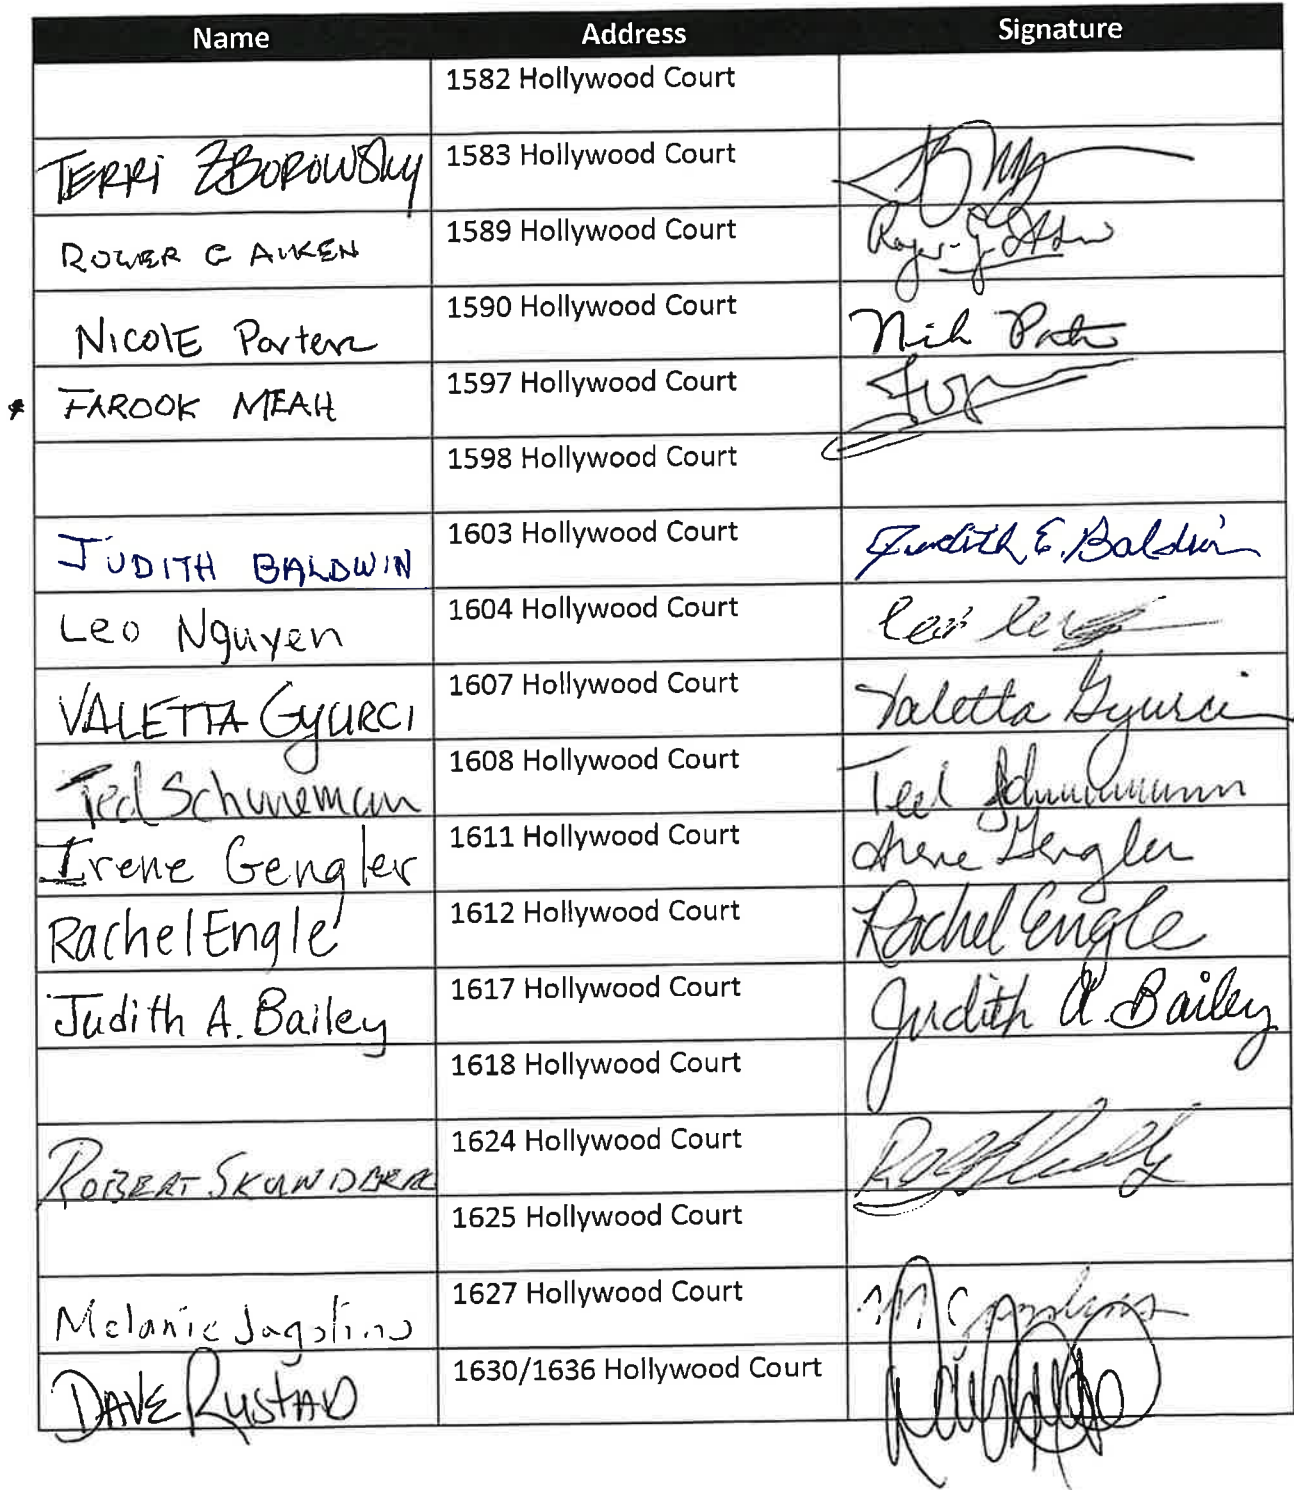 Name Address Signature
1582 Hollywood Court
TERRI ZBOROWSKY 1583 Hollywood Court
ROGER G AIKEN 1589 Hollywood Court
NICOlE Porter 1590 Hollywood Court
* FAROOK MEAH 1597 Hollywood Court
1598 Hollywood Court
JUDITH BALDWIN 1603 Hollywood Court Judith E. Baldwin
Leo Nguyen 1604 Hollywood Court
VALETTA GYURCI 1607 Hollywood Court Valetta Gyurci
Ted Schuneman 1608 Hollywood Court Ted Schunemann
Irene Gengler 1611 Hollywood Court Irene Gengler
Rachel Engle 1612 Hollywood Court Rachel Engle
Judith A. Bailey 1617 Hollywood Court Judith A. Bailey
1618 Hollywood Court
ROBERT SKUNDBERG 1624 Hollywood Court
1625 Hollywood Court
Melanie Jagolino 1627 Hollywood Court
DAVE RUSTAD 1630/1636 Hollywood Court